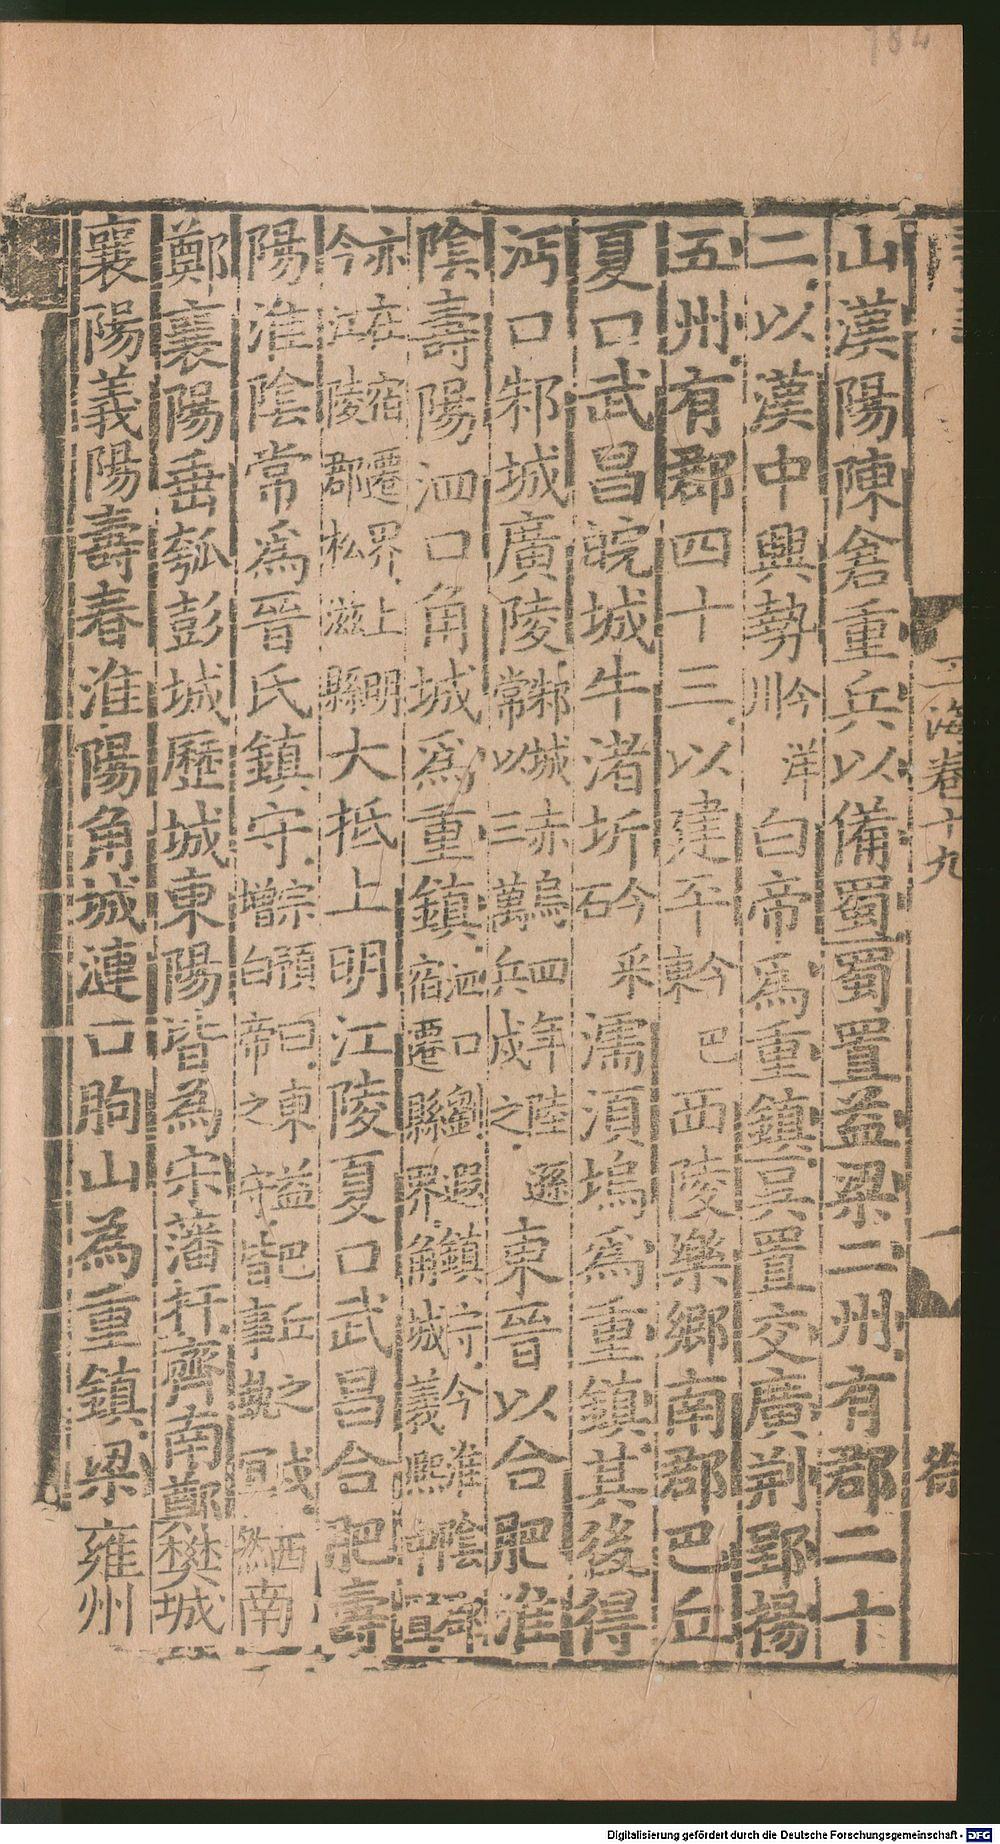 184
山漢陽陳倉重兵以備蜀蜀置益梁二州有郡二十
二以漢中興勢今洋川白帝為重鎮吳置交廣荆郢揚
五州有郡四十三以建平今巴東西陵樂鄉南郡巴丘
夏口武昌皖城牛渚圻今采石濡須塢為重鎮其後得
沔口邾城廣陵邾城赤烏四年陸遜常以三萬兵戍之東晉以合肥淮
陰壽陽泗口角城為重鎮泗口劉遐鎮守今淮陰宿遷縣界角城義熙中置
亦在宿遷界上明今江陵郡松滋縣大抵上明江陵夏口武昌合肥壽
陽淮陰常為晉氏鎮守宗預曰東益巴丘之戍西增白帝之守皆事勢宜然南
鄭襄陽垂瓠彭城歷城東陽皆為宋藩扞齊南鄭樊城
襄陽義陽壽春淮陽角城漣口朐山為重鎮梁雍州
玉海卷十九 一
Digitalisierung gefördert durch die Deutsche Forschungsgemeinschaft - DFG